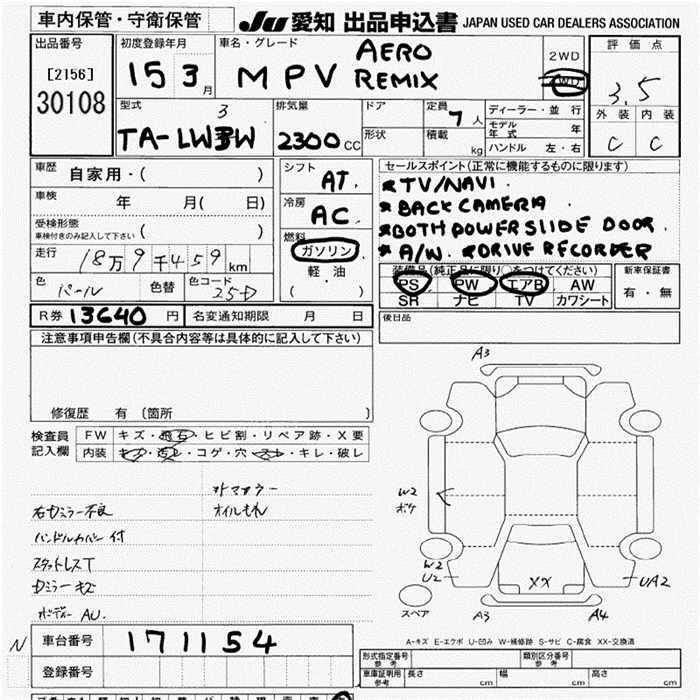 車内保管・守衛保管
Ju 愛知 出品申込書 JAPAN USED CAR DEALERS ASSOCIATION
出品番号
[2156]
30108
初度登録年月
15 3 月
車名・グレード
MPV AERO REMIX
2WD
4WD
評価点
3.5
外装 内装
C C
型式
3
TA-LW3W
排気量
2300 CC
ドア
形状
定員
7 人
積載
kg
ディーラー・並行
モデル年式 年
ハンドル 左・右
車歴
自家用・( )
車検
年 月( 日)
受検形態
車検付きのみ記入して下さい ( )
走行
18万9千459 km
色
パール
色替
色コード
25D
シフト
AT
冷房
AC
燃料
ガソリン
軽油
( )
セールスポイント(正常に機能するものに限ります)
*TV/NAVI.
*BACK CAMERA
*BOTH POWER SLIDE DOOR.
*A/W. *DRIVE RECORDER
装備品(純正品に限り○をつけてください)
PS PW エアB AW
SR ナビ TV カワシート
新車保証書
有・無
R券 13640 円
名変通知期限 月 日
後日品
注意事項申告欄(不具合内容等は具体的に記入して下さい)
修復歴 有 〔箇所 〕
検査員記入欄
FW キズ・飛石・ヒビ割・リペア跡・X要
内装 キズ・汚レ・コゲ・穴・スレ・キレ・破レ
右ウミラー不良
ハンドルカバー付
スタットレスT
Dミラーキズ
ボディー AU.
社外マフラー
オイルもれ
A3
W2
ボケ
W2
U2
XX
UA2
スペア
A3
A4
A-キズ E-エクボ U-凹み W-補修跡 S-サビ C-腐食 XX-交換済
N
車台番号
171154
登録番号
形式指定番号
参考
類別区分番号
参考
車庫証明用
参考
長さ cm 幅 cm 高さ cm